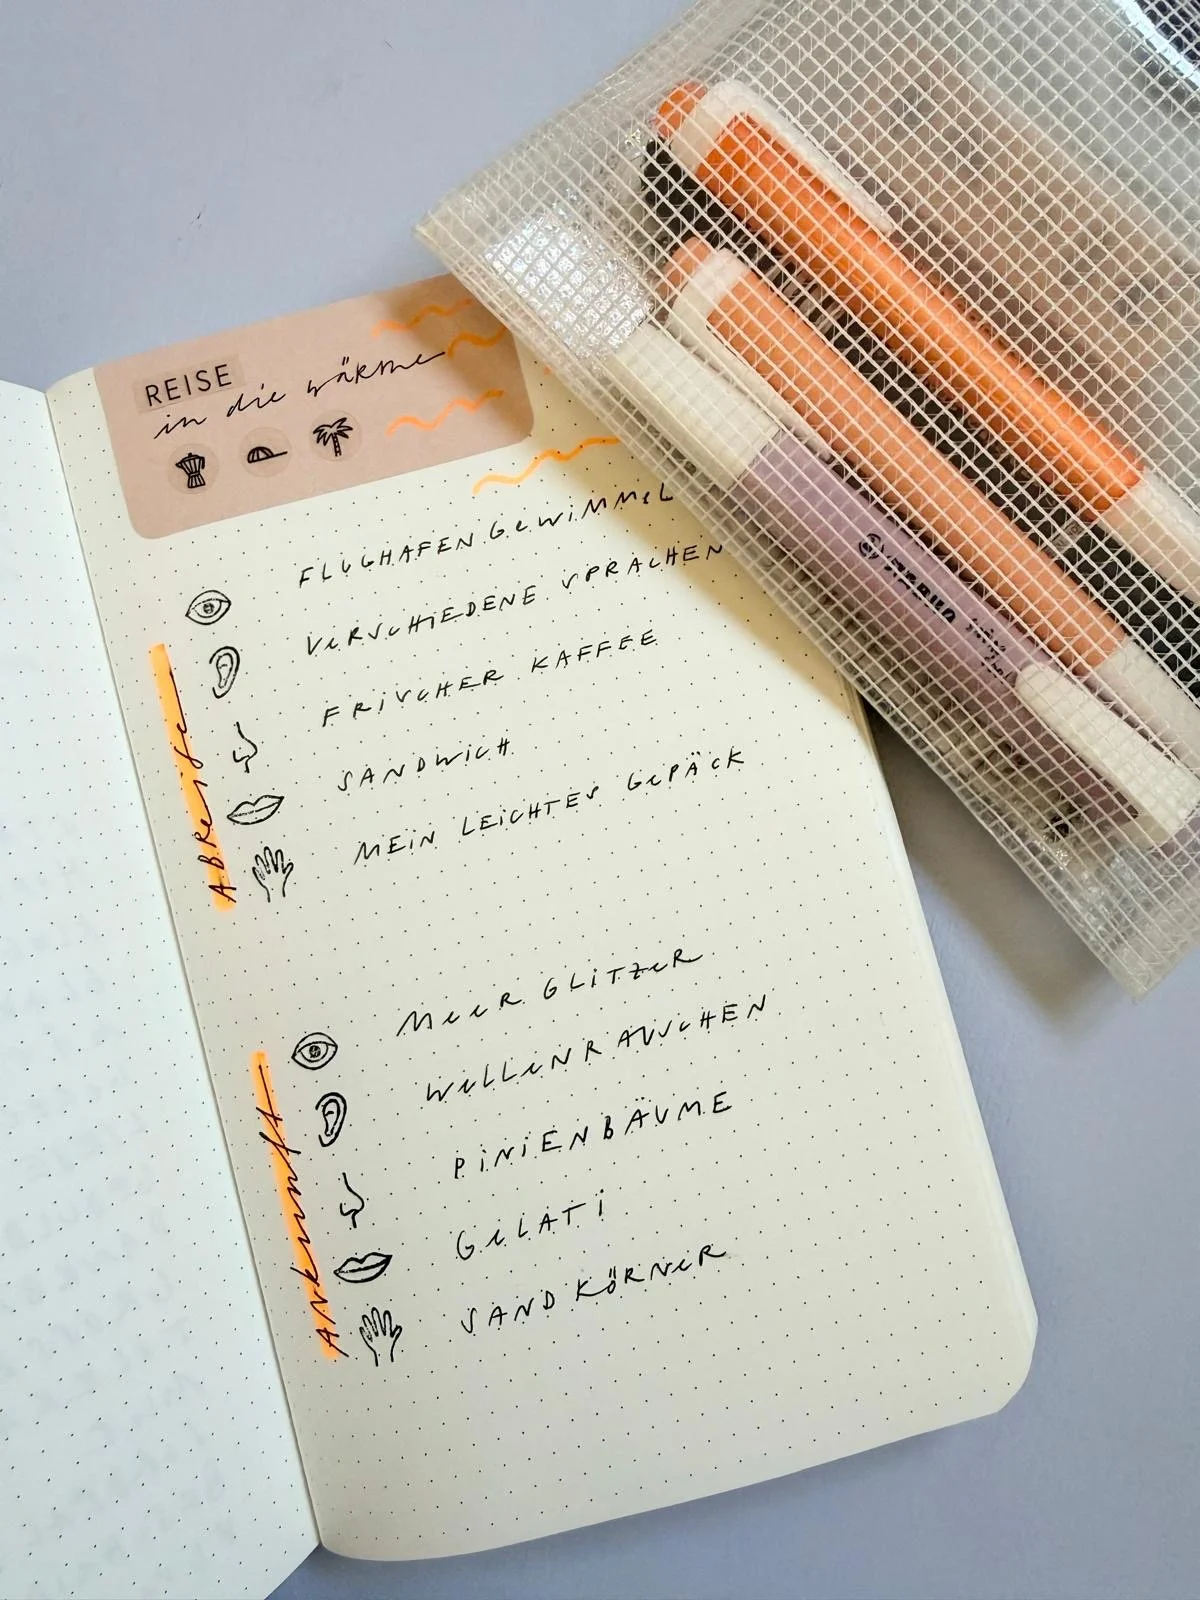 REISE
in die wärme
ABReise
FLUGHAFENGeWiMMeL
VeRSCHiEDENE SPRACHEN
FRiSCHER KAFFEE
SANDWiCH
MEiN LEiCHTES GePÄCK
ANkunft
MeeRGLiTZeR
WeLLeNRAUSCHEN
PiNiENBÄUME
GeLATi
SANDKöRNeR
STABILO